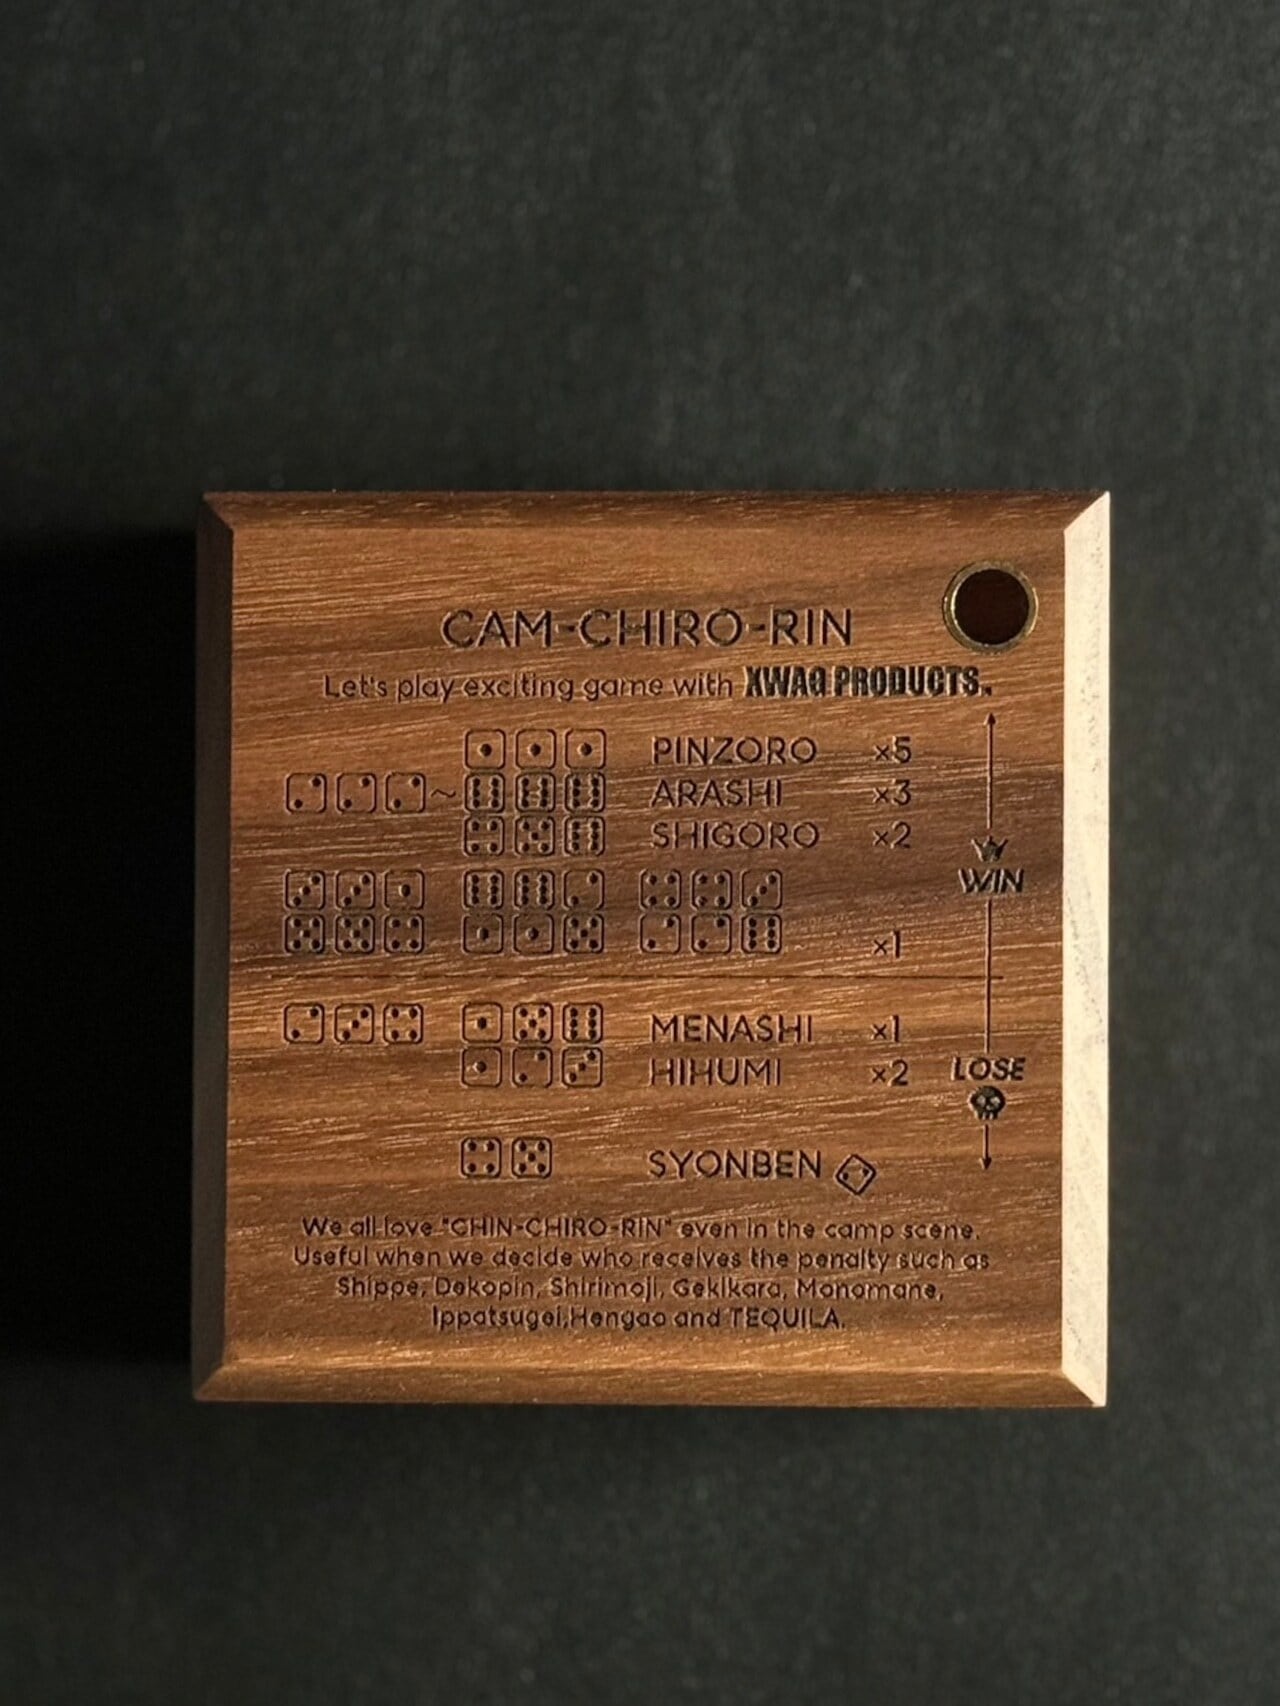 CAM-CHIRO-RIN
Let's play exciting game with XWAG PRODUCTS.
PINZORO ×5
~ ARASHI ×3
SHIGORO ×2
WIN
×1
MENASHI ×1
HIHUMI ×2
LOSE
SYONBEN
We all love "CHIN-CHIRO-RIN" even in the camp scene.
Useful when we decide who receives the penalty such as
Shippe, Dekopin, Shirimoji, Gekikara, Monomane,
Ippatsugei,Hengao and TEQUILA.